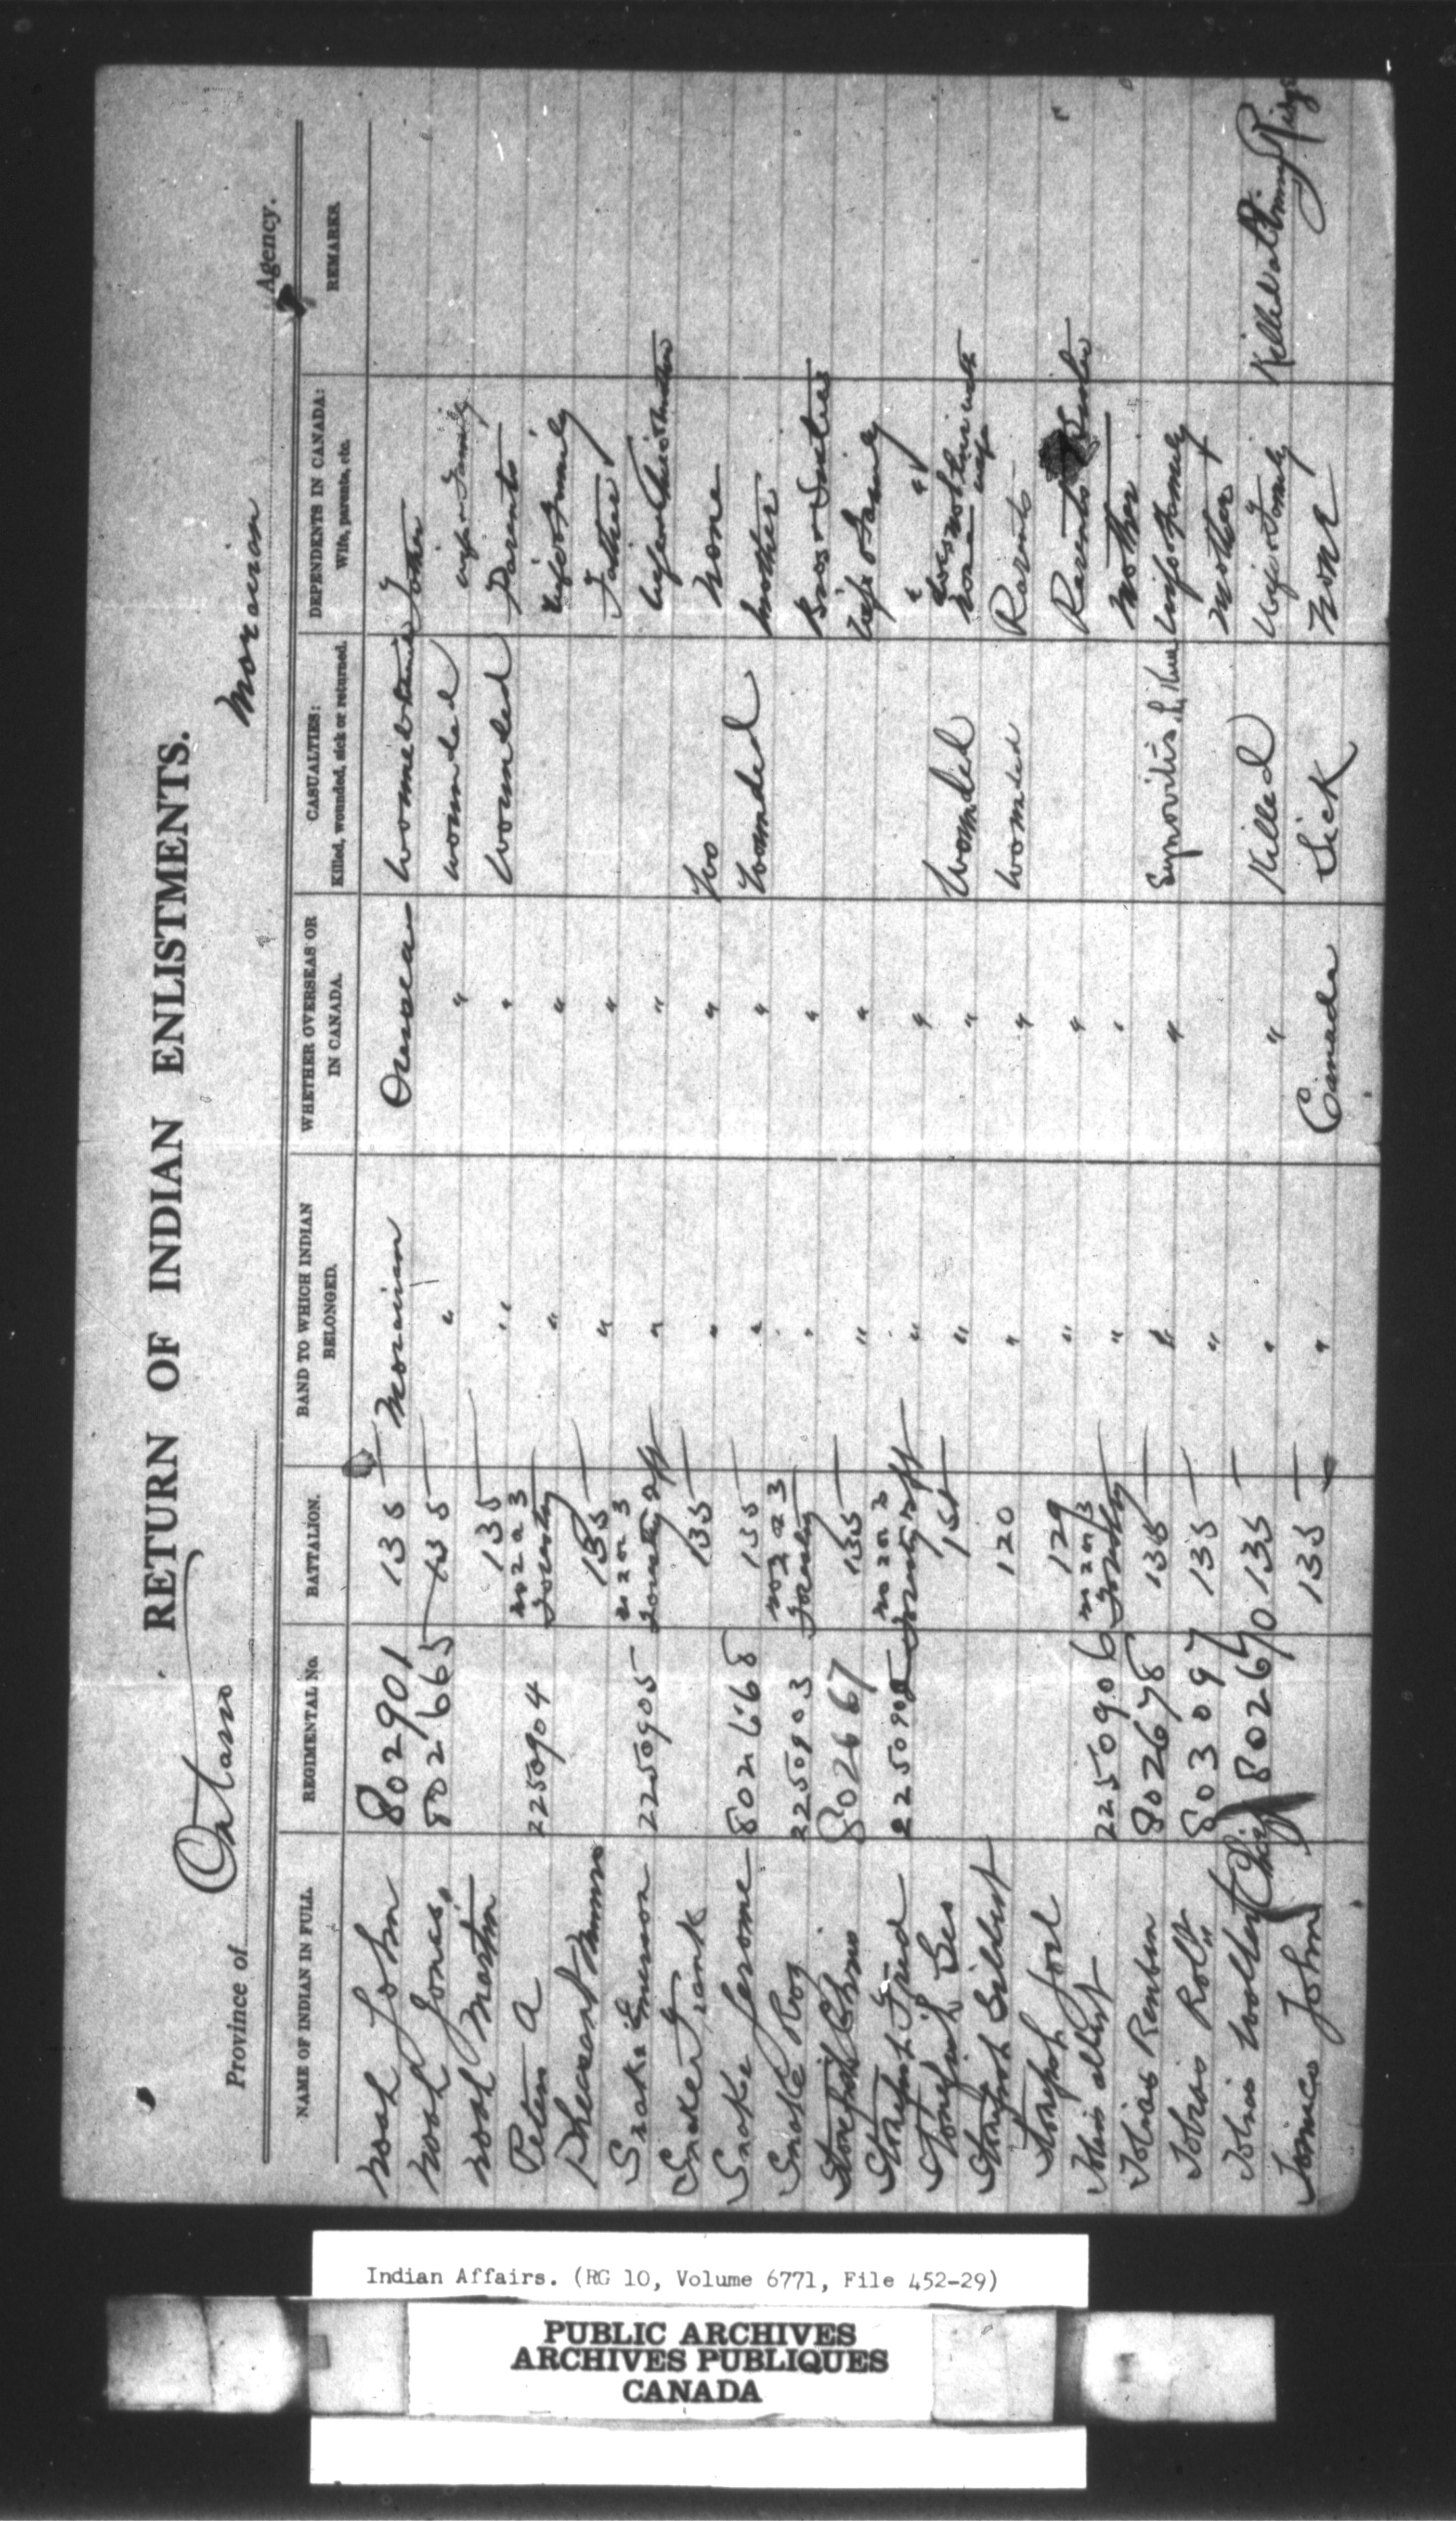 RETURN OF INDIAN ENLISTMENTS.
Province of Ontario Moravian Agency.
NAME OF INDIAN IN FULL. REGIMENTAL No. BATTALION. BAND TO WHICH INDIAN BELONGED. WHETHER OVERSEAS OR IN CANADA. CASUALTIES: Killed, wounded, sick or returned. DEPENDENTS IN CANADA: Wife, parents, etc. REMARKS.
Noah John 802901 135 Moravian Overseas Father
Noah Jonas 802665 135 " " wounded wife & Family
Noah Martin 135 " " wounded Parents
Peter A 2250904 no 2 or 3 Forestry " " Wife & Family
Pheasant 135 " " Father
Snake Emerson 2250905 no 2 or 3 Forestry Dft " "
Snake Frank 135 " " none
Snake Jerome 802668 135 " " wounded mother
Snake Roy 2250903 no 2 or 3 Forestry " " Bros & Sisters
Stonefish 802667 135 " " Wife & Family
Stonefish Fred no 2 or 3 Forestry Dft " " " "
Stonefish Geo 1st " " wounded
Stonefish Gilbert 120 " " wounded Parents
Stonefish Joel 129 " " Parents
Tobias Albert 2250906 no 2 or 3 Forestry " " Mother
Tobias Reuben 802678 135 " " Wife & Family
Tobias Rolt 803097 135 " Mother
Tobias (Chief) 802670 135 " " Killed Wife & Family Killed at Vimy Ridge
Tomico John 135 " Canada Sick None
Indian Affairs. (RG 10, Volume 6771, File 452-29)
PUBLIC ARCHIVES
ARCHIVES PUBLIQUES
CANADA